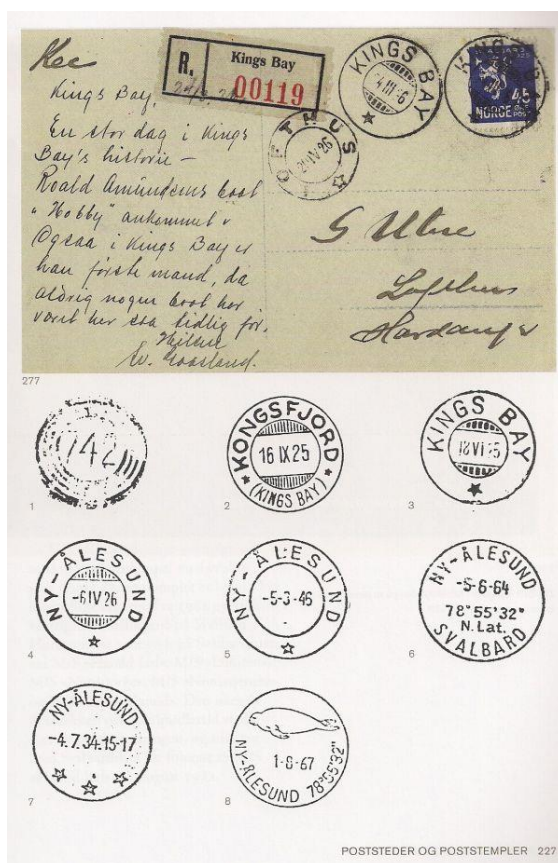 R. Kings Bay
00119
KINGS BAY
NORGE 45
Kings Bay,
En stor dag i Kings
Bay's historie –
Roald Amundsens boot
"Hobby" ankommet.
Ogsaa i Kings Bay er
han første mand, da
aldrig nogen boot har
været her saa tidlig før.
Hilsen
277
742
1
KONGSFJORD
16 IX 25
(KINGS BAY)
2
KINGS BAY
18 VI 25
3
NY-ÅLESUND
-6 IV 26
4
NY-ÅLESUND
-5-3-46
5
NY-ÅLESUND
-5-6-64
78°55'32"
N.Lat.
SVALBARD
6
NY-ÅLESUND
-4.7.34.15-17
7
1-8-67
NY-ÅLESUND 78°55'32"
8
POSTSTEDER OG POSTSTEMPLER 227